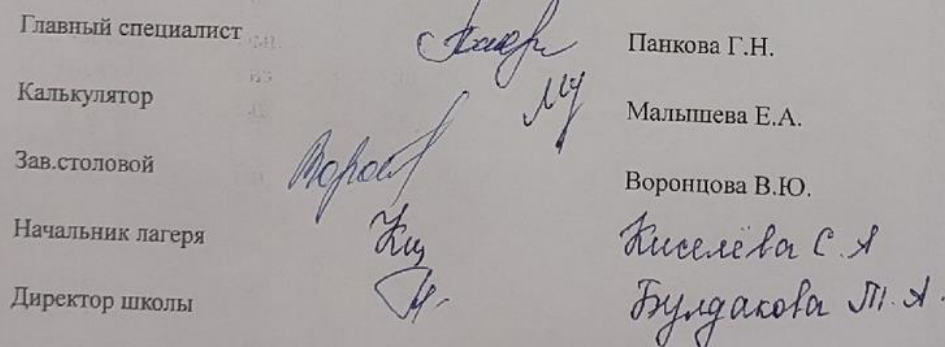 Главный специалист Панкова Г.Н.
Калькулятор Малышева Е.А.
Зав.столовой Воронцова В.Ю.
Начальник лагеря Киселёва С.А
Директор школы Булдакова Т.А.